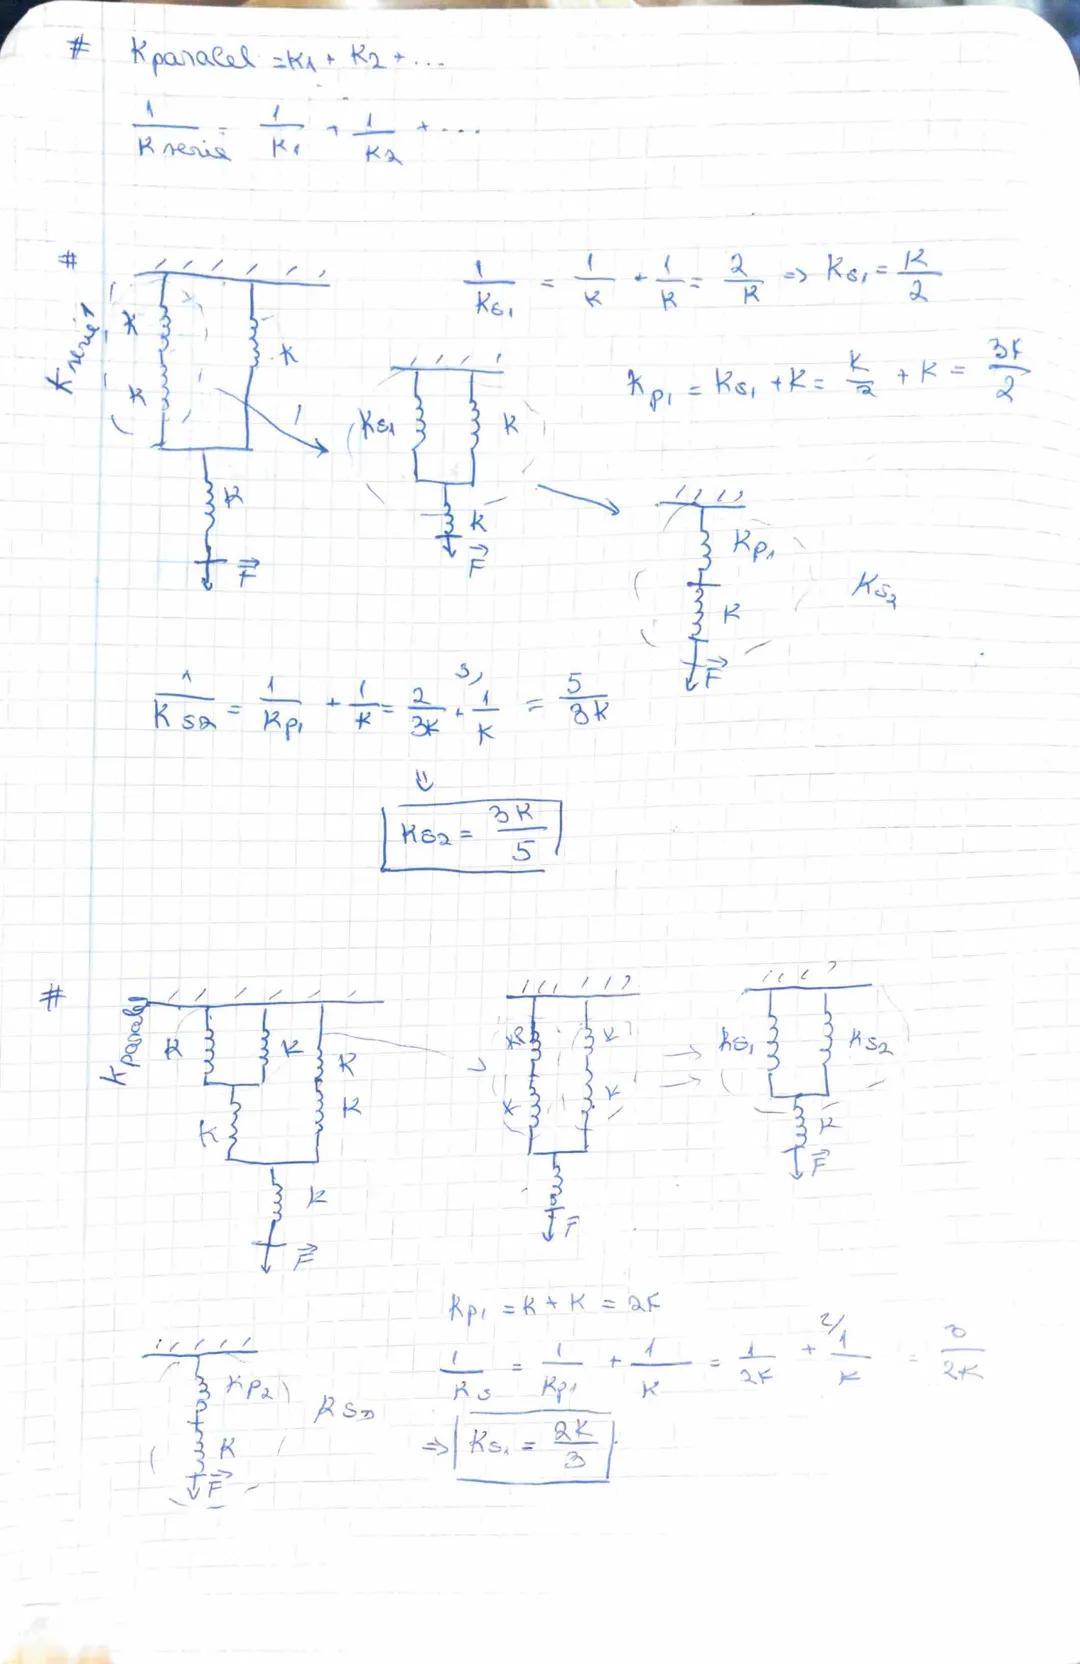 # Kparalel = K1 + K2 + ...
1/Kserie = 1/K1 + 1/K2 + ...
#
Kserie1
K
K
K
K
F
1/Ks1 = 1/K + 1/K = 2/K => Ks1 = K/2
Kp1 = Ks1 + K = K/2 + K = 3K/2
Ks1
K
K
F
Kp1
K
F
Ks2
1/Ks2 = 1/Kp1 + 1/K = 2/3K + 3) 1/K = 5/3K
⇓
Ks2 = 3K/5
#
Kparalel
K
K
K
K
K
K
F
K
K
K
F
Ks1
Ks2
K
F
Kp1 = K + K = 2K
1/Ks = 1/Kp1 + 1/K = 1/2K + 2/ 1/K = 3/2K
=> Ks1 = 2K/3
Kp2
K
F